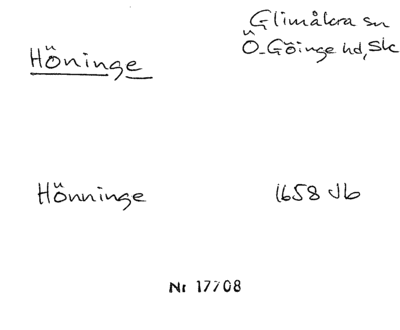 Glimåkra sn
Höninge
Ö. Göinge hd, Sk
Hönninge 1658 Jb
Nr 17708